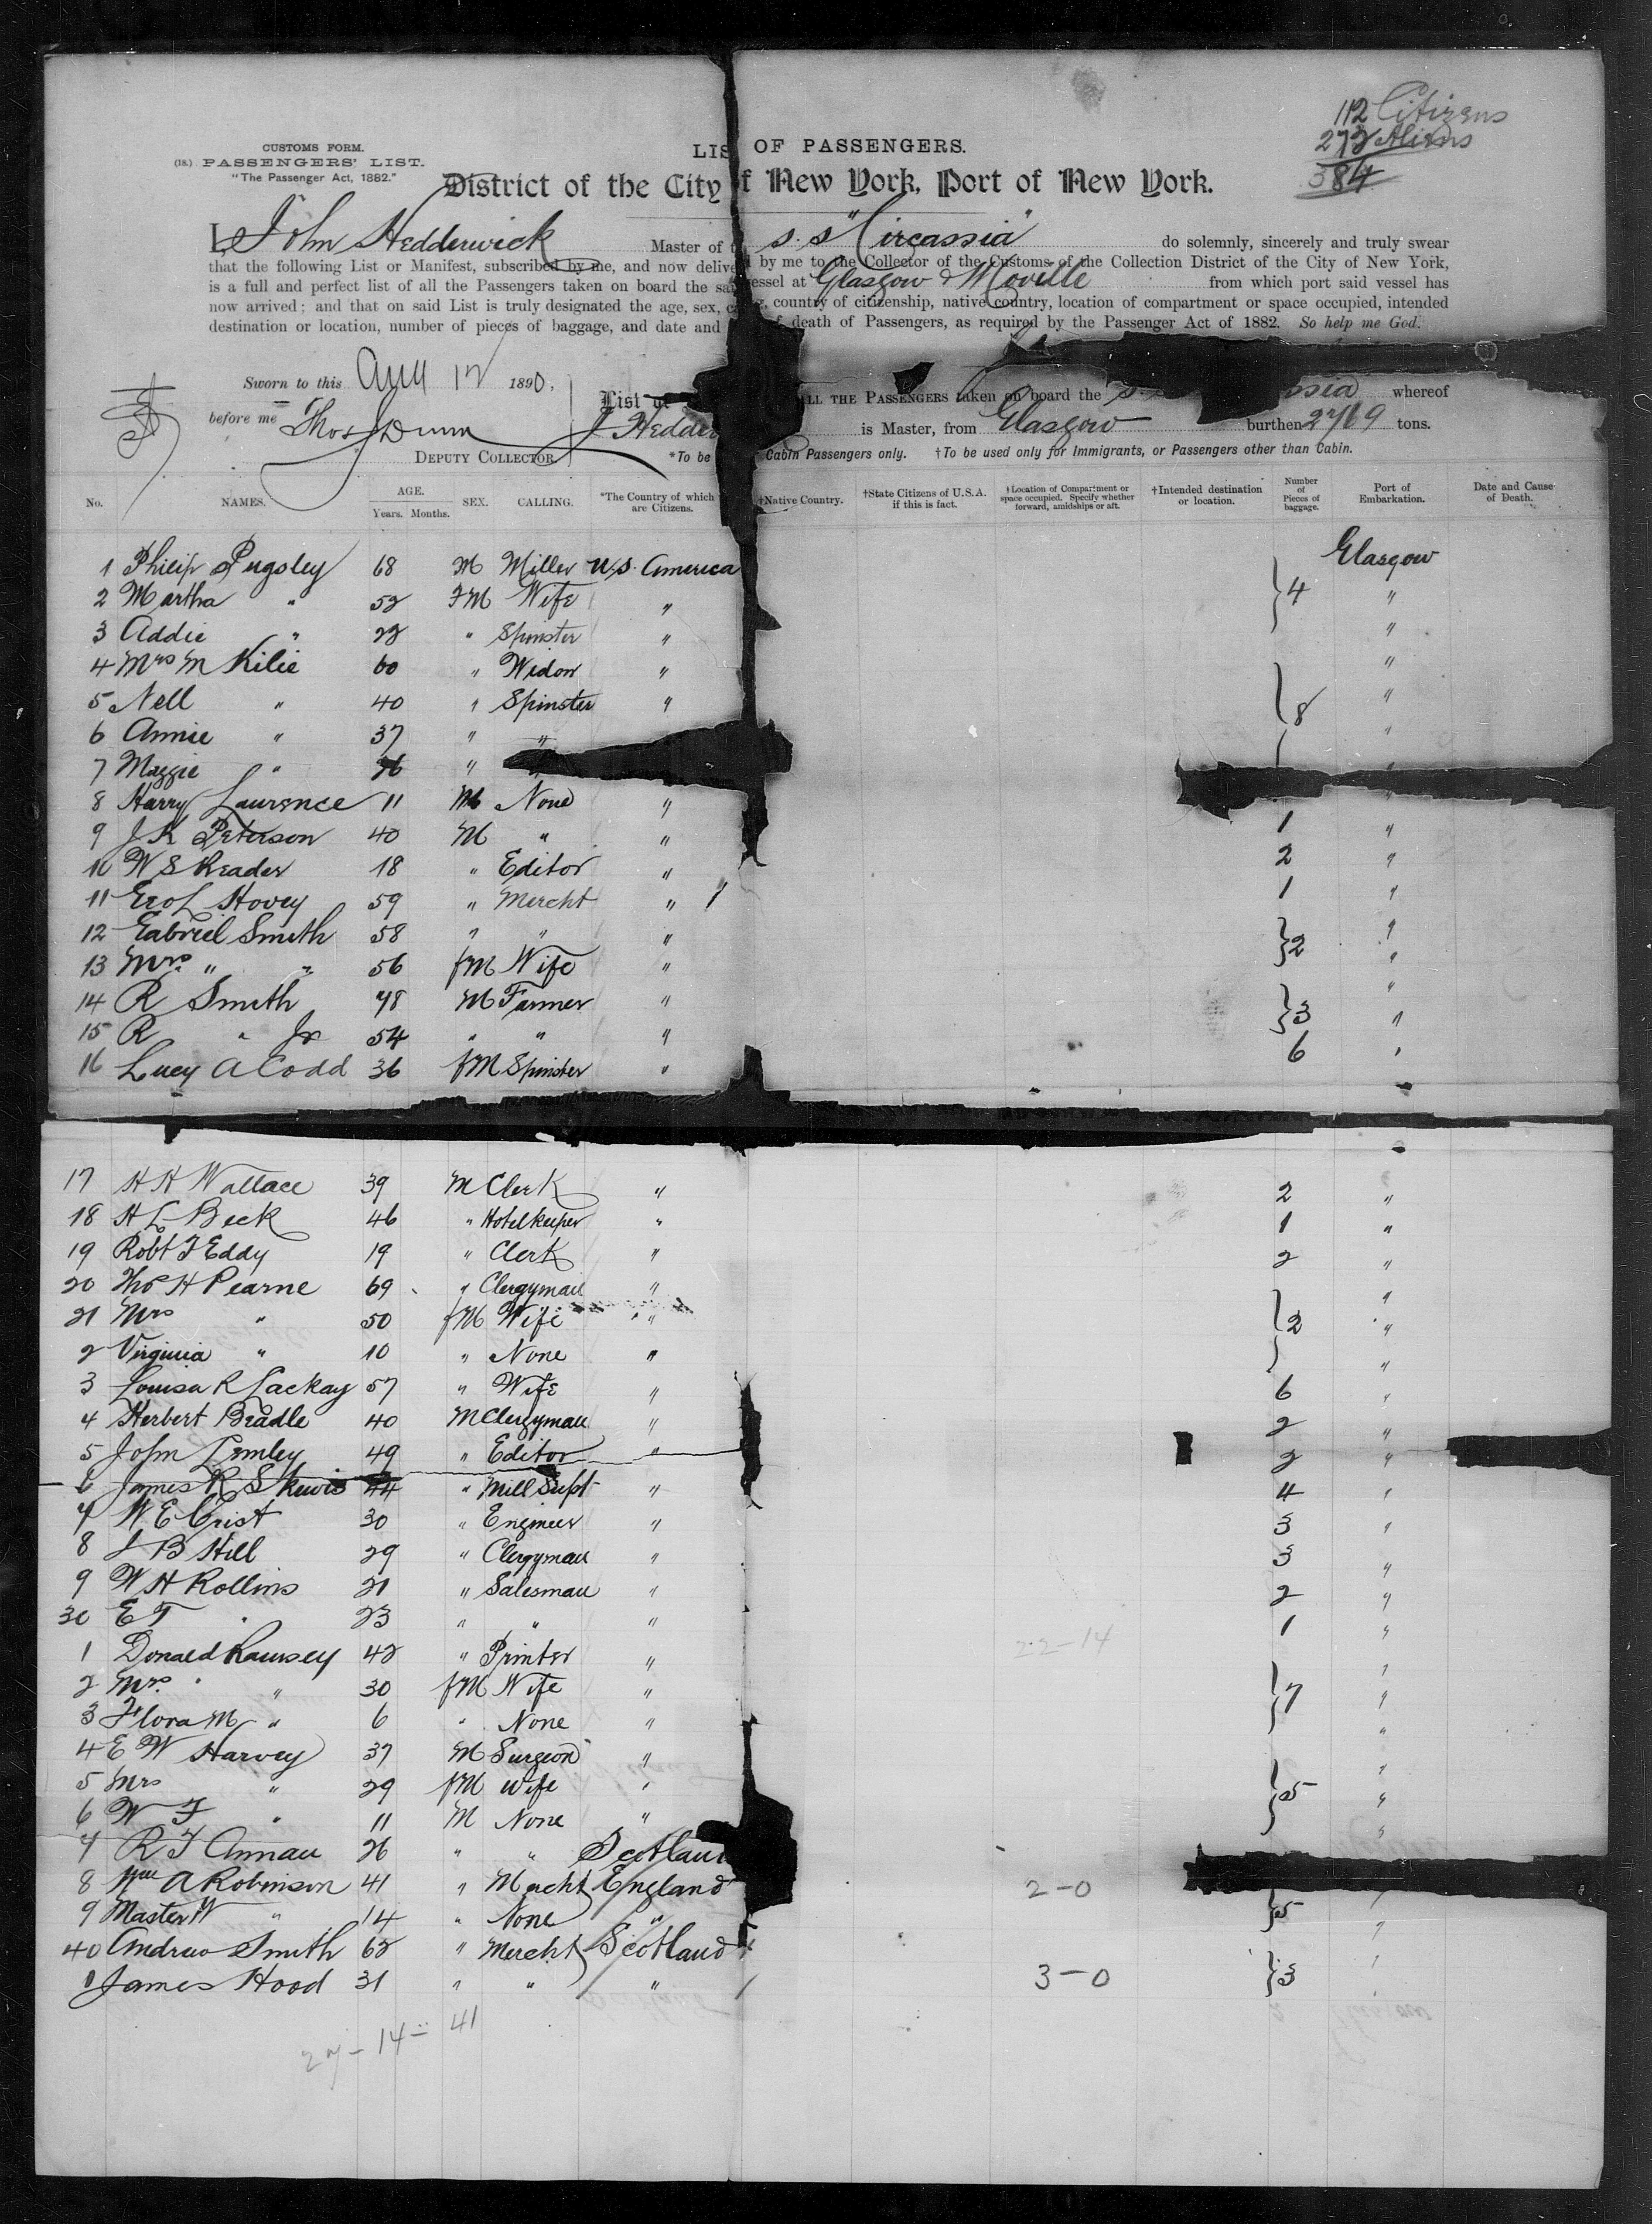 112 Citizens
272 Aliens
384
CUSTOMS FORM.
(18.) PASSENGERS' LIST.
"The Passenger Act, 1882."
LIST OF PASSENGERS.
District of the City of New York, Port of New York.
I, John Hedderwick Master of the s.s "Circassia" do solemnly, sincerely and truly swear
that the following List or Manifest, subscribed by me, and now delivered by me to the Collector of the Customs of the Collection District of the City of New York,
is a full and perfect list of all the Passengers taken on board the said vessel at Glasgow & Moville from which port said vessel has
now arrived; and that on said List is truly designated the age, sex, country of citizenship, native country, location of compartment or space occupied, intended
destination or location, number of pieces of baggage, and date and death of Passengers, as required by the Passenger Act of 1882. So help me God.
Sworn to this 1890,
before me Thos J Dunn
DEPUTY COLLECTOR.
List ALL THE PASSENGERS taken on board the whereof
J Hedder is Master, from Glasgow burthen 2769 tons.
*To be Cabin Passengers only. †To be used only for Immigrants, or Passengers other than Cabin.
No. NAMES. AGE. Years. Months. SEX. CALLING. *The Country of which are Citizens. †Native Country. †State Citizens of U.S.A. if this is fact. †Location of Compartment or space occupied. Specify whether forward, amidships or aft. †Intended destination or location. Number of Pieces of baggage. Port of Embarkation. Date and Cause of Death.
1 Philip Pugsley 68 M Miller U.S. America Glasgow
2 Martha " 52 FM Wife " 4 "
3 Addie " 22 " Spinster " "
4 Mrs M Kilie 60 " Widow " "
5 Nell " 40 " Spinster " 8 "
6 Annie " 37 " " "
7 Maggie " 36 " "
8 Harry Laurence 11 M None " "
9 J K Peterson 40 M " " 1 "
10 W S Reader 18 " Editor " 2 "
11 Hovey 59 " Mercht " 1 "
12 Gabriel Smith 58 " " " "
13 Mrs " " 56 fM Wife " 2 "
14 R Smith 78 M Farmer " "
15 R " Jr 54 " " " 3 "
16 Lucy A Codd 36 fM Spinster " 6 "
17 H H Wallace 39 M Clerk " 2 "
18 H L Beck 46 " Hotelkeeper " 1 "
19 Robt F Eddy 19 " Clerk " 2 "
20 Thos H Pearne 69 " Clergyman " "
21 Mrs " 50 fM Wife " 2 "
2 Virginia " 10 " None " "
3 Louisa R Lackay 57 " Wife " 6 "
4 Herbert Beadle 40 M Clergyman " 2 "
5 John Lemley 49 " Editor " 2 "
6 James R Skewis 44 " Mill Supt " 4 "
7 W E Crist 30 " Engineer " 3 "
8 J B Hill 29 " Clergyman " 3 "
9 W H Rollins 21 " Salesman " 2 "
30 E T " 23 " " " 1 "
22-14
1 Donald Ramsey 42 " Printer " "
2 Mrs " " 30 fM Wife " 7 "
3 Flora M " 6 " None " "
4 E W Harvey 37 M Surgeon " "
5 Mrs " 29 fM Wife " 5 "
6 W F " 11 M None " "
7 R F Annan 26 " " Scotland
8 Wm A Robinson 41 " Mercht England 2-0
9 Master W " 14 " None " 5 "
40 Andrew Smith 62 " Mercht Scotland "
1 James Hood 31 " " " 3-0 3 "
27-14=41